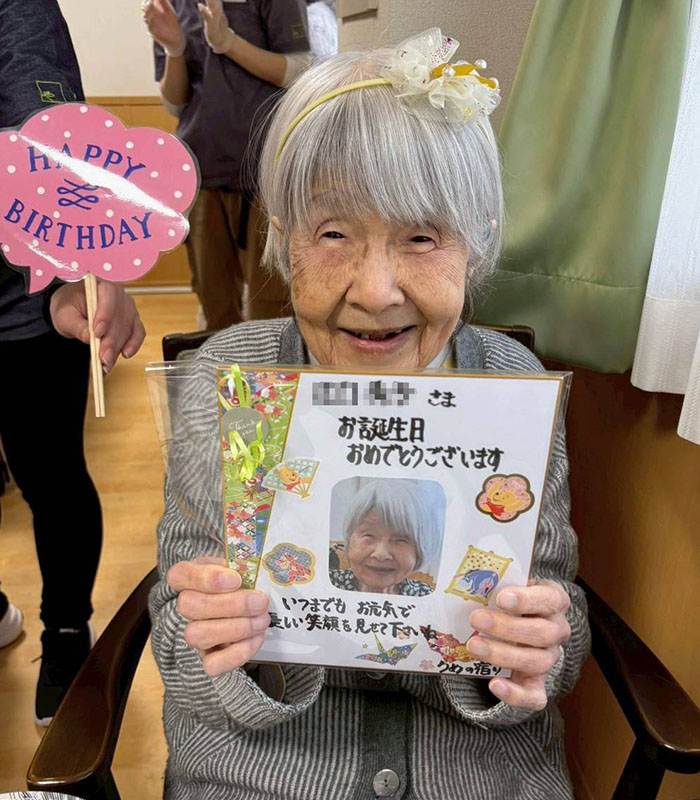 HAPPY
BIRTHDAY
さま
お誕生日
おめでとうございます
いつまでも お元気で
笑顔を見せて下さいね
うめの宿